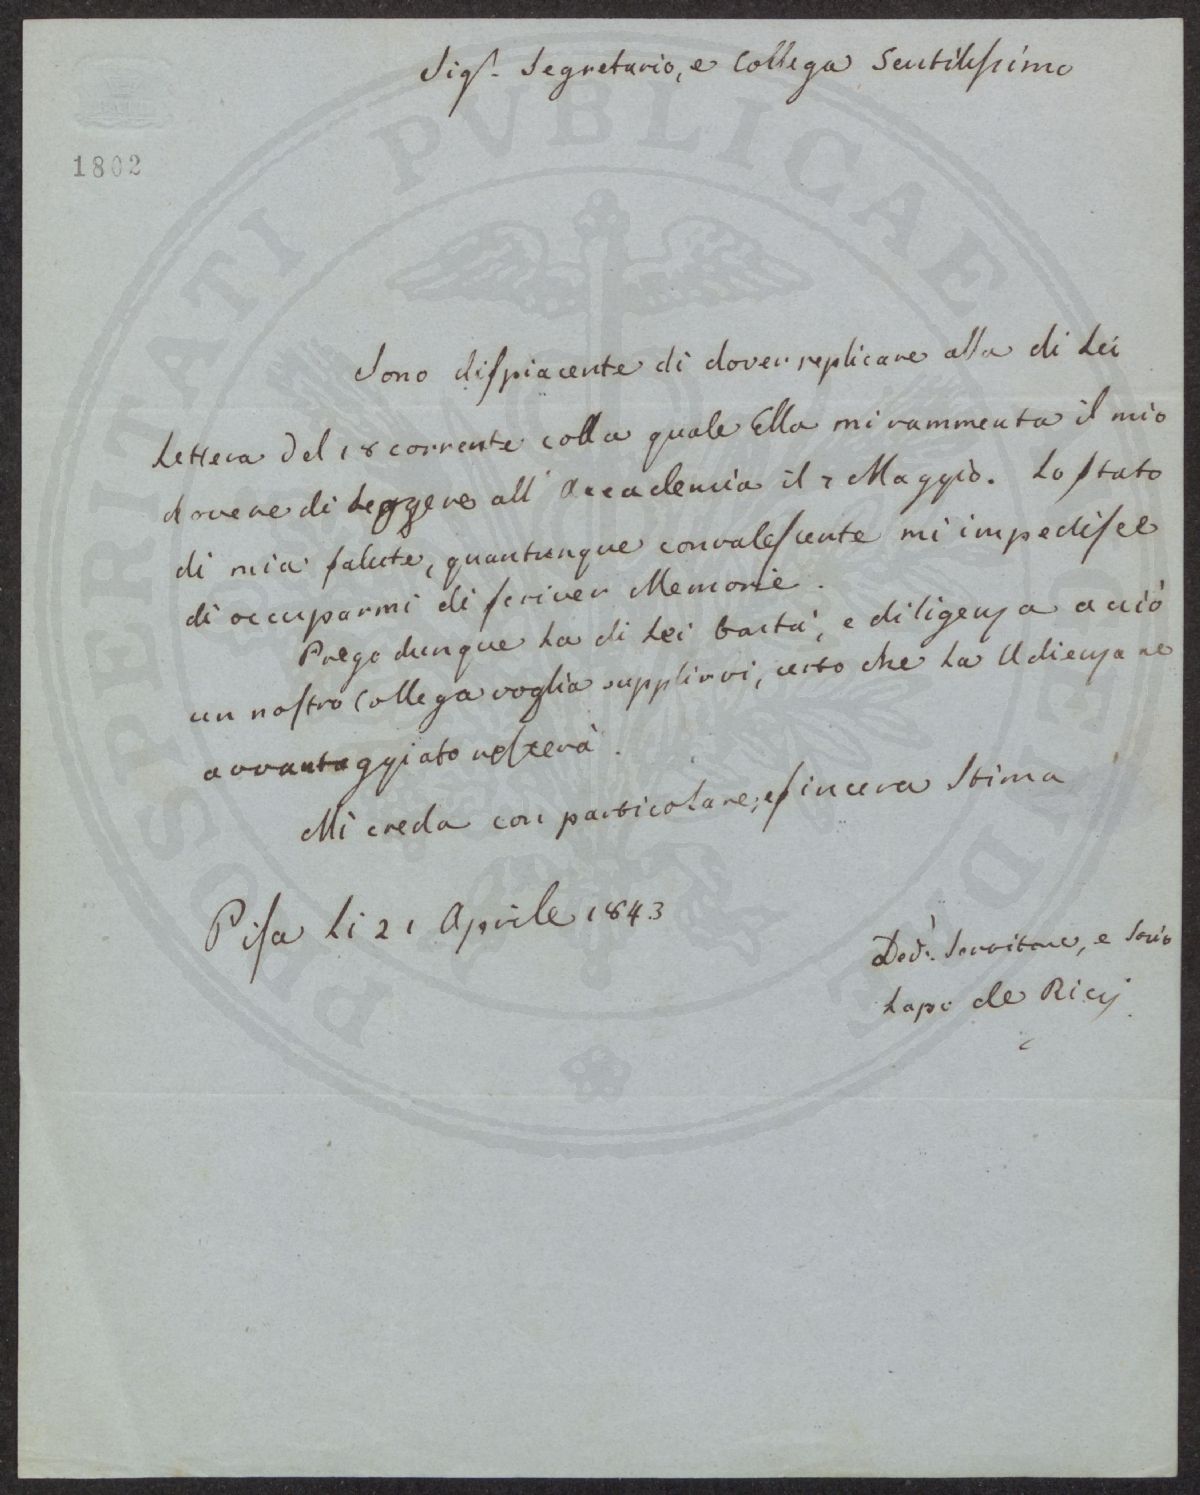 Sigr. Segretario, e Collega Gentilissimo
1802
PROSPERITATI PVBLICAE AVGENDAE
Sono dispiacente di dover replicare alla di Lei
Lettera del 18 corrente colla quale Ella mi rammenta il mio
dovere di Leggere all'Accademia il 7 Maggio. Lo stato
di mia salute, quantunque convalescente mi impedisce
di occuparmi di scriver Memorie.
Prego dunque La di Lei bontà, e diligenza acciò
un nostro Collega voglia supplirvi, certo che La Udienza ne
avvantaggiato resterà.
Mi creda con particolare, e sincera Stima
Pisa Li 21 Aprile 1843
Devo. Servitore, e Socio
Lapo de Ricci